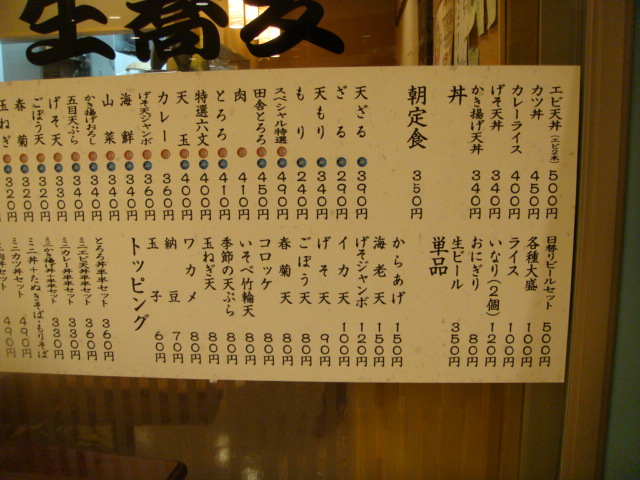 生蕎麦
エビ天丼(エビ2本) 500円
カツ丼 450円
カレーライス 400円
げそ天丼 340円
かき揚げ天丼 340円
丼
朝定食 350円
天ざる 390円
ざる 290円
天もり 340円
もり 240円
スペシャル特選 490円
田舎とろろ 450円
肉 410円
とろろ 410円
特選六文 400円
天玉 400円
カレー 360円
げそ天ジャンボ 360円
海鮮 340円
山菜 340円
かき揚げおろし 340円
五目天ぷら 340円
げそ天 330円
ごぼう天 320円
春菊 320円
玉ねぎ 320円
日替りビールセット 500円
各種大盛 100円
ライス 100円
いなり(2個) 120円
おにぎり 80円
生ビール 350円
単品
からあげ 150円
海老天 150円
げそジャンボ 120円
イカ天 100円
げそ天 90円
ごぼう天 80円
春菊天 80円
コロッケ 80円
いそべ竹輪天 80円
季節の天ぷら 80円
玉ねぎ天 80円
ワカメ 80円
納豆 70円
玉子 60円
トッピング
とろろ丼半半セット 360円
ミニエビ天丼半半セット 360円
ミニカレー丼半半セット 330円
ミニかき揚げ丼+半半セット 330円
ミニ丼+たぬきそば・もりそば 490円
ミニカツ丼セット 490円